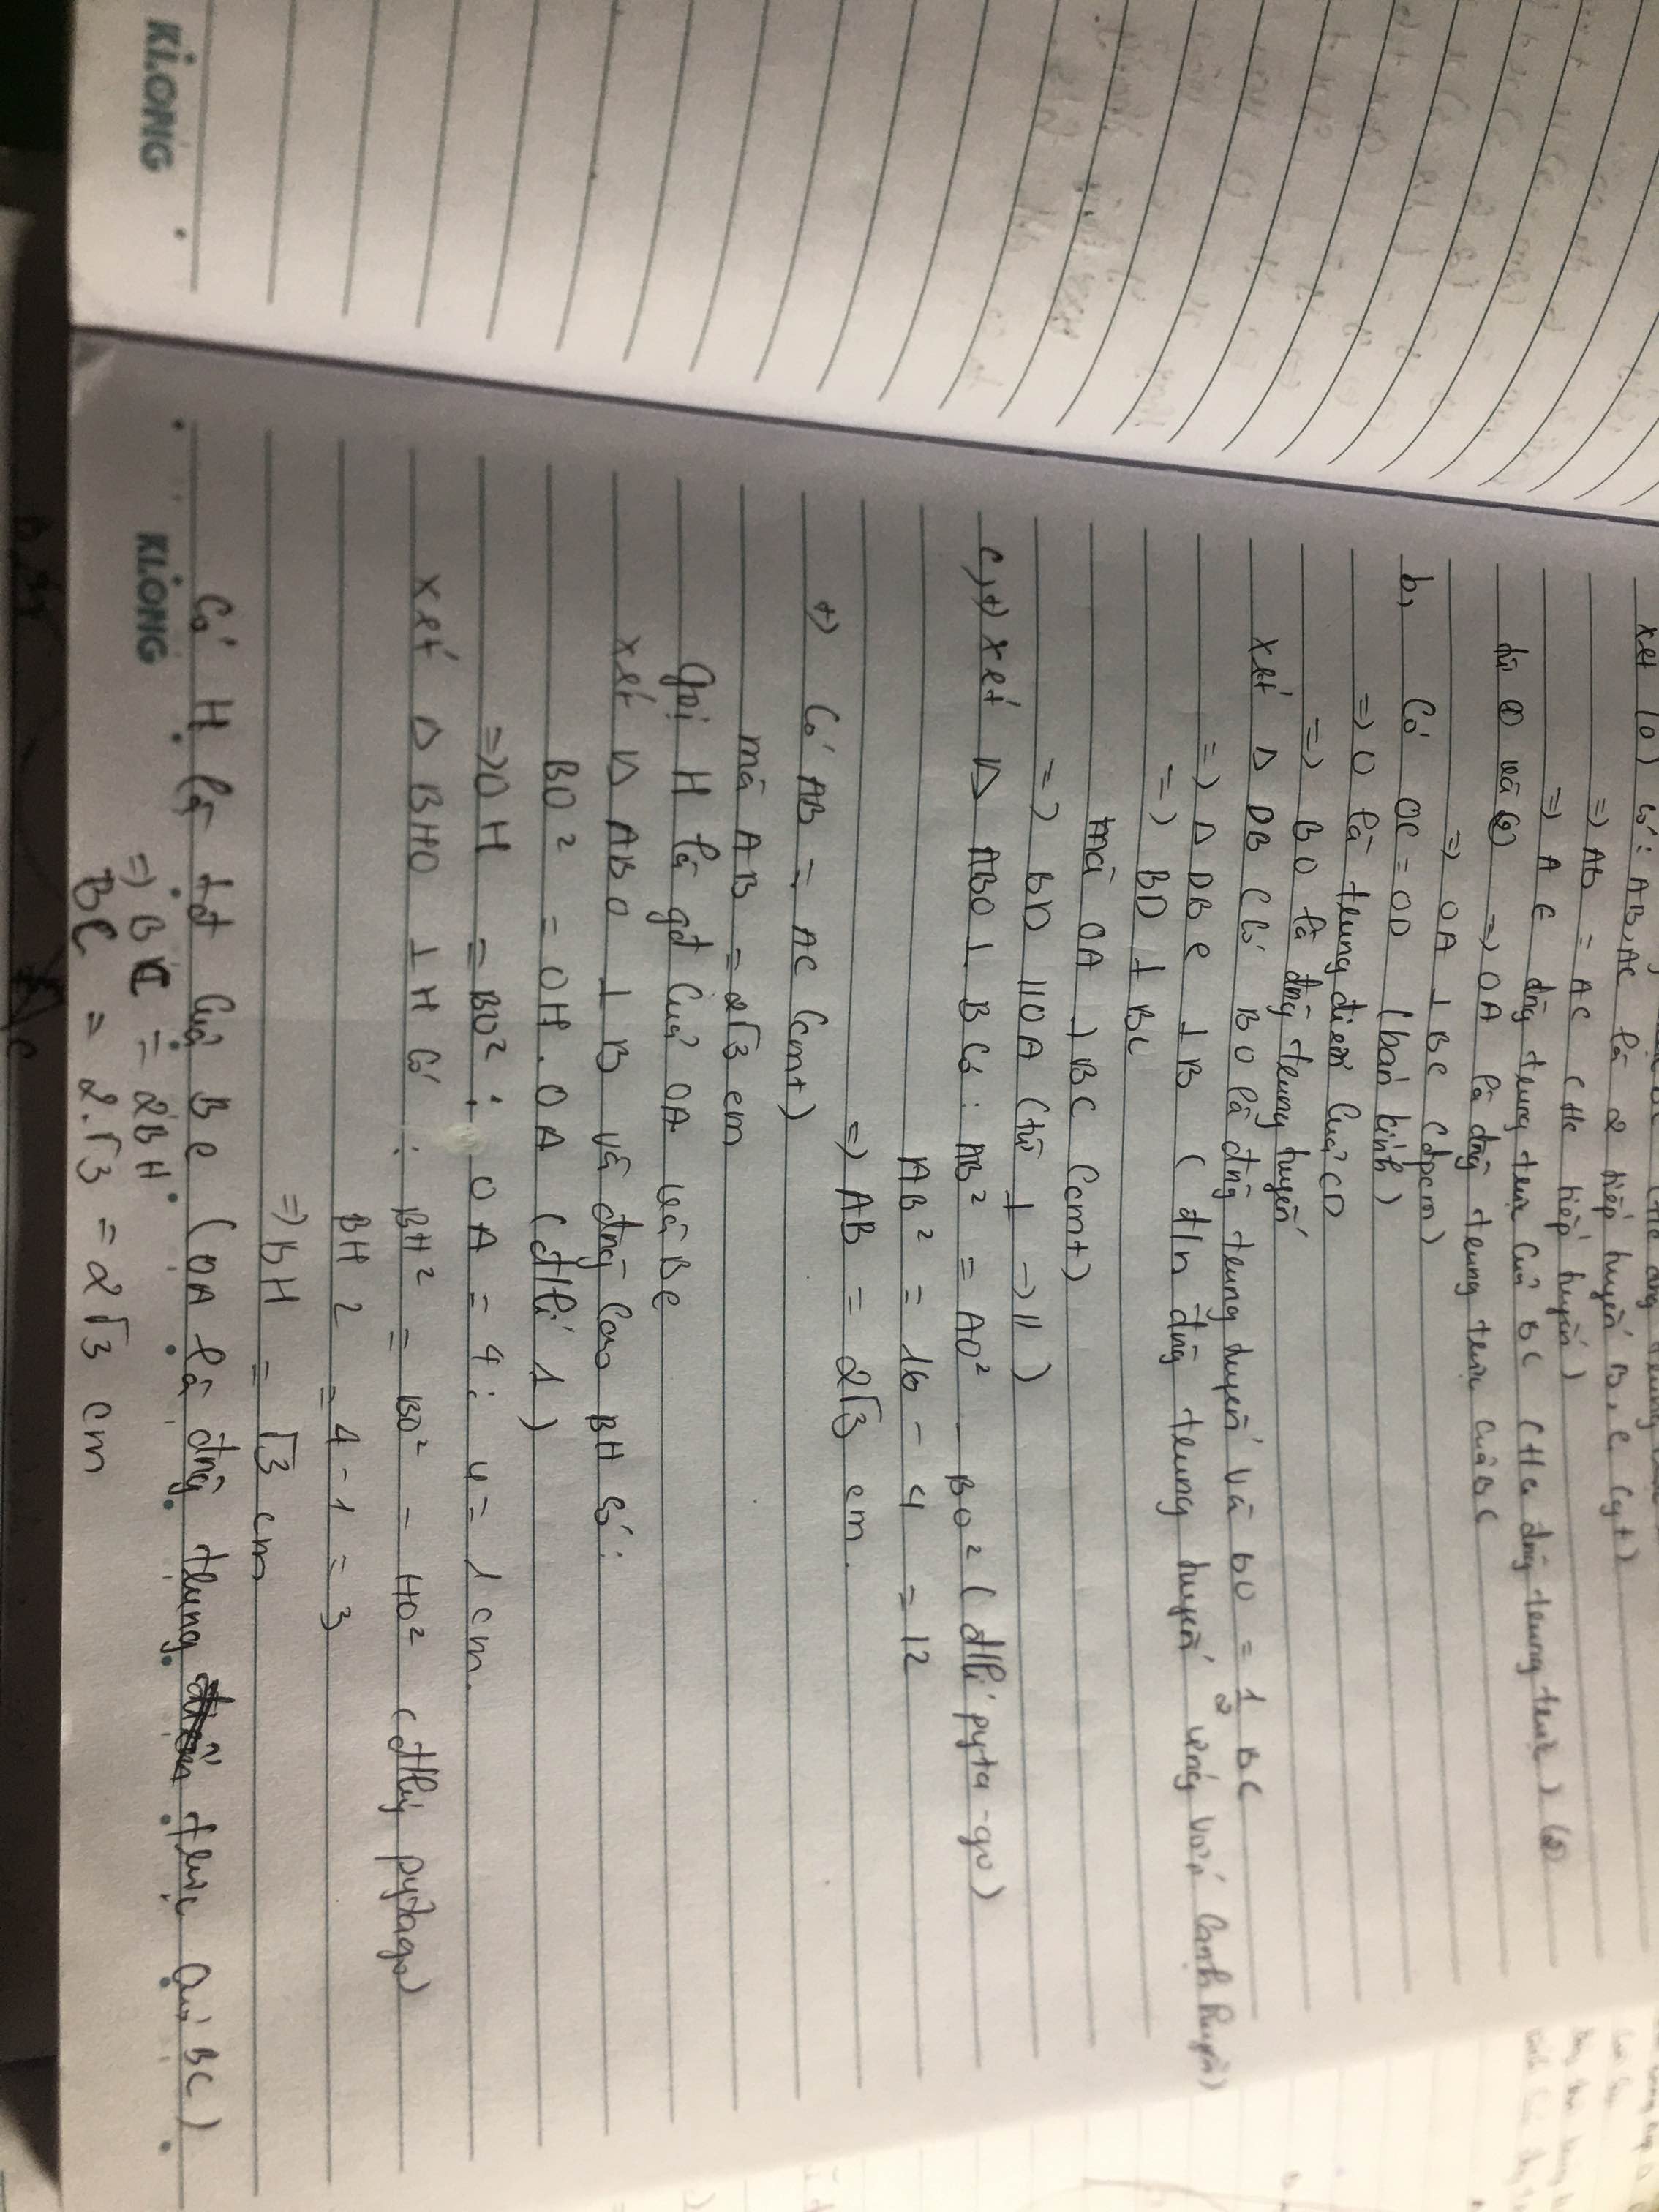 xét (O) có: AB, AC là 2 tiếp tuyến B, C (gt)
=) AB = AC (t/c tiếp tuyến)
=) A ∈ đng trung trực của BC (t/c đng trung trực) (2)
từ (1) và (2) =) OA là đng trung trực của BC
=) OA ⊥ BC (đpcm)
b, Có OC = OD (bán kính)
=) O là trung điểm của CD
=) BO là đng trung tuyến
xét Δ DBC có BO là đng trung tuyến và BO = 1/2 BC
=) Δ DBC ⊥ B (đ/n đng trung tuyến ứng với cạnh huyền)
=) BD ⊥ BC
mà OA ⊥ BC (cmt)
=) BD // OA (từ ⊥ -> //)
c, +) xét Δ ABO ⊥ B có: AB² = AO² - BO² (đ/lí pyta-go)
AB² = 16 - 4 = 12
=) AB = 2√3 cm.
+) Có AB = AC (cmt)
mà AB = 2√3 cm
Gọi H là gđ của OA và BC
xét Δ ABO ⊥ B và đng cao BH có:
BO² = OH. OA (đ/lí 1)
=) OH = BO² : OA = 4 : 4 = 1 cm.
xét Δ BHO ⊥ H có: BH² = BO² - HO² (đ/lý pytago)
BH² = 4 - 1 = 3
=) BH = √3 cm
Có H là tđ của BC (OA là đng trung trực của BC)
=) BC = 2BH
BC = 2.√3 = 2√3 cm
KLONG
KLONG